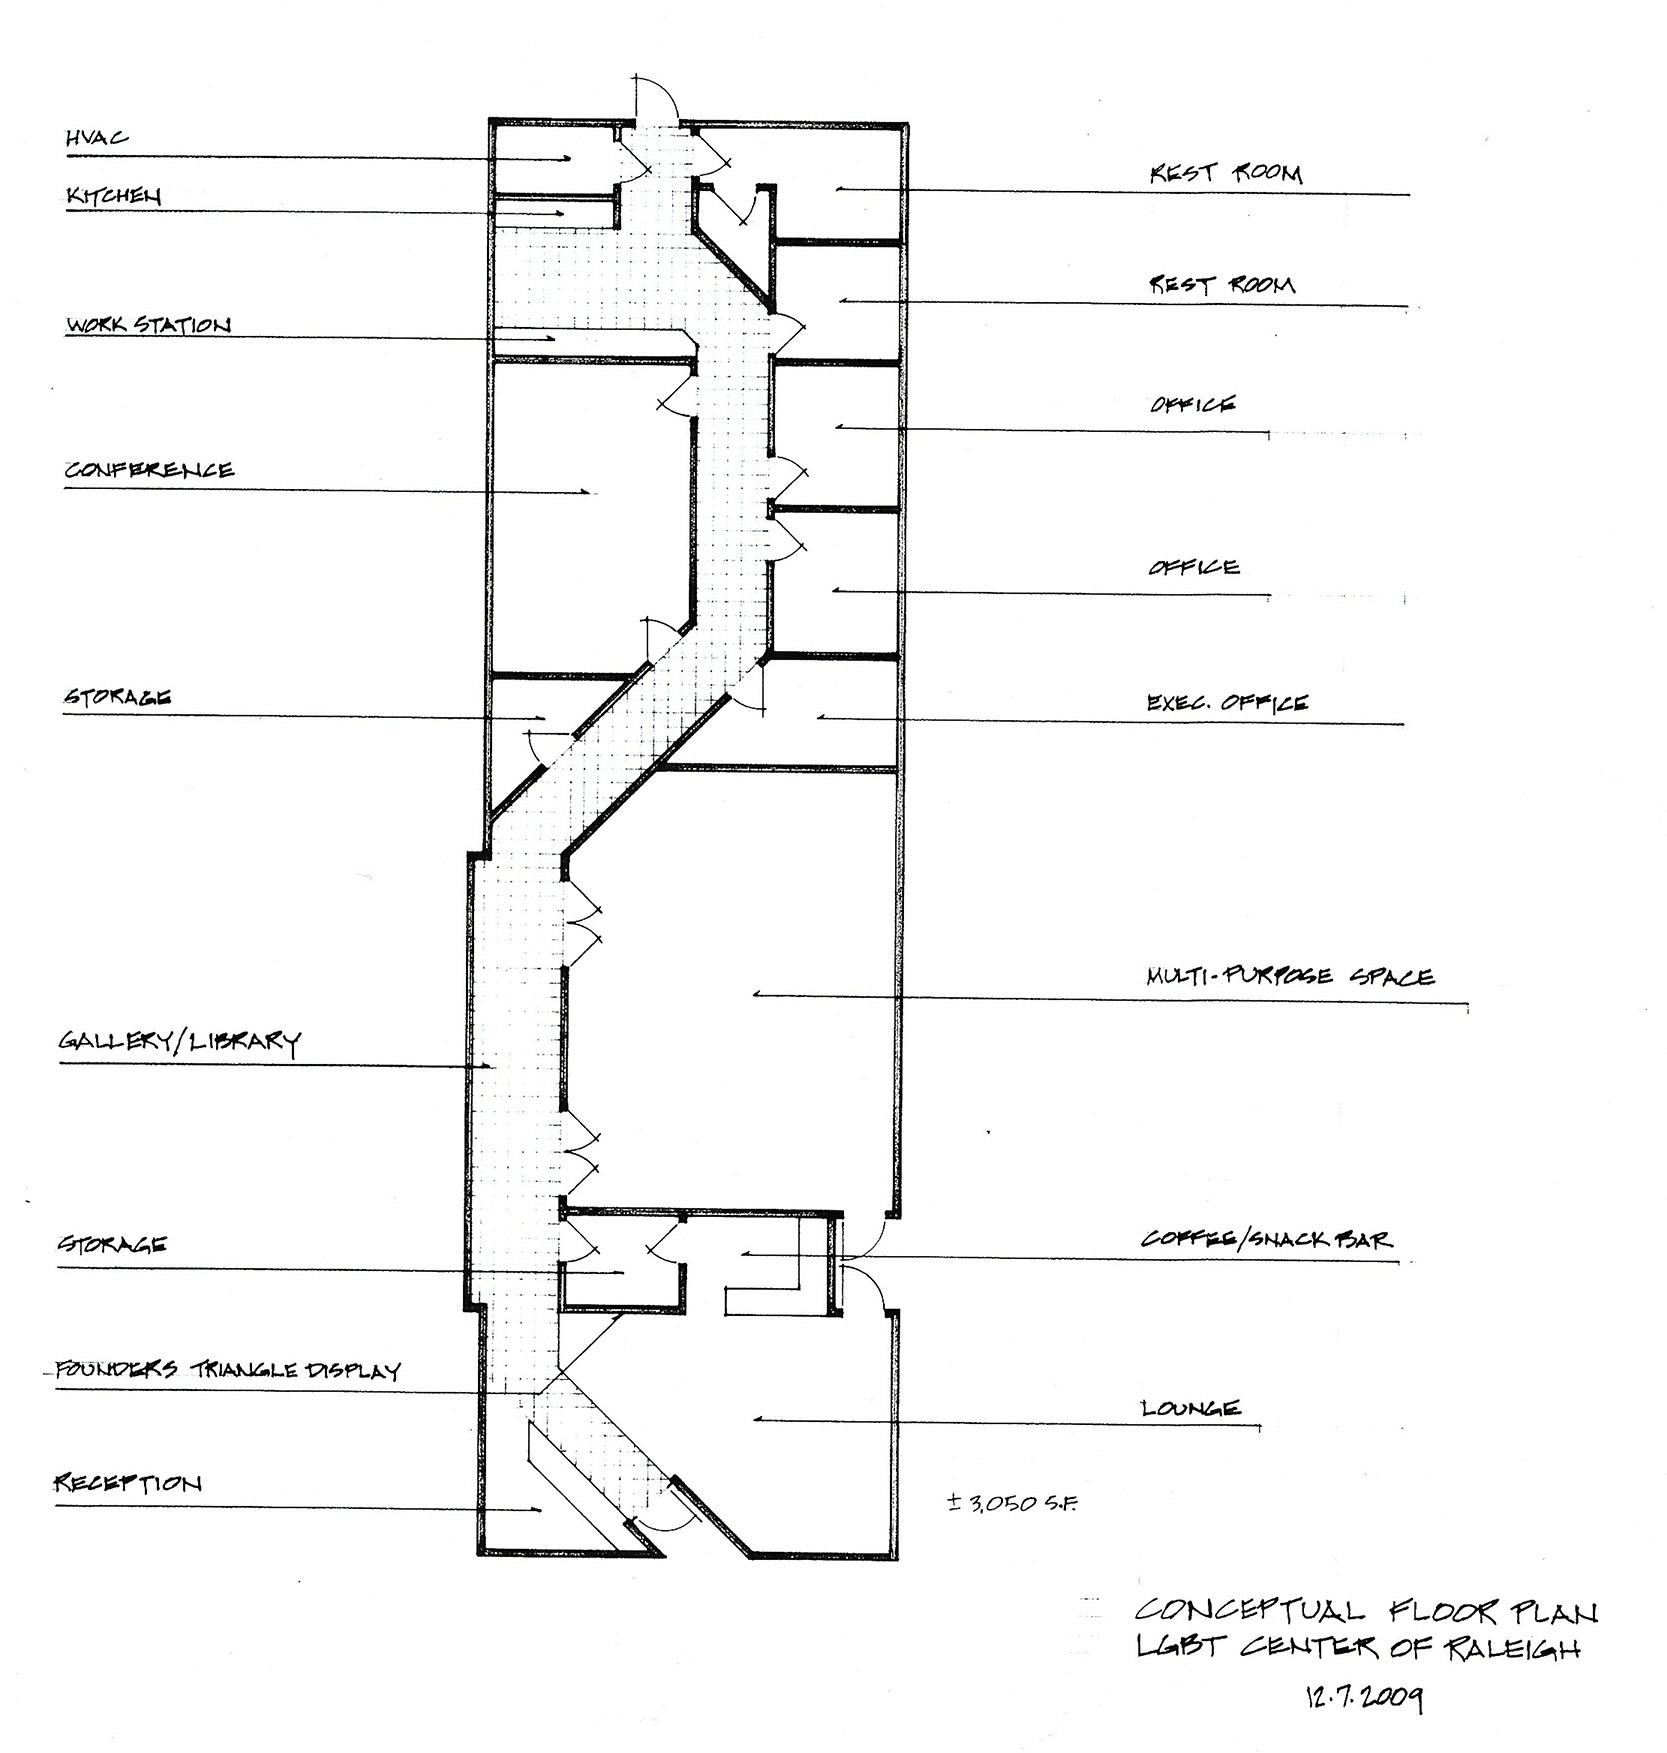 HVAC
KITCHEN
WORK STATION
CONFERENCE
STORAGE
GALLERY/LIBRARY
STORAGE
FOUNDERS TRIANGLE DISPLAY
RECEPTION
REST ROOM
REST ROOM
OFFICE
OFFICE
EXEC. OFFICE
MULTI-PURPOSE SPACE
COFFEE/SNACK BAR
LOUNGE
± 3,050 S.F.
CONCEPTUAL FLOOR PLAN
LGBT CENTER OF RALEIGH
12.7.2009